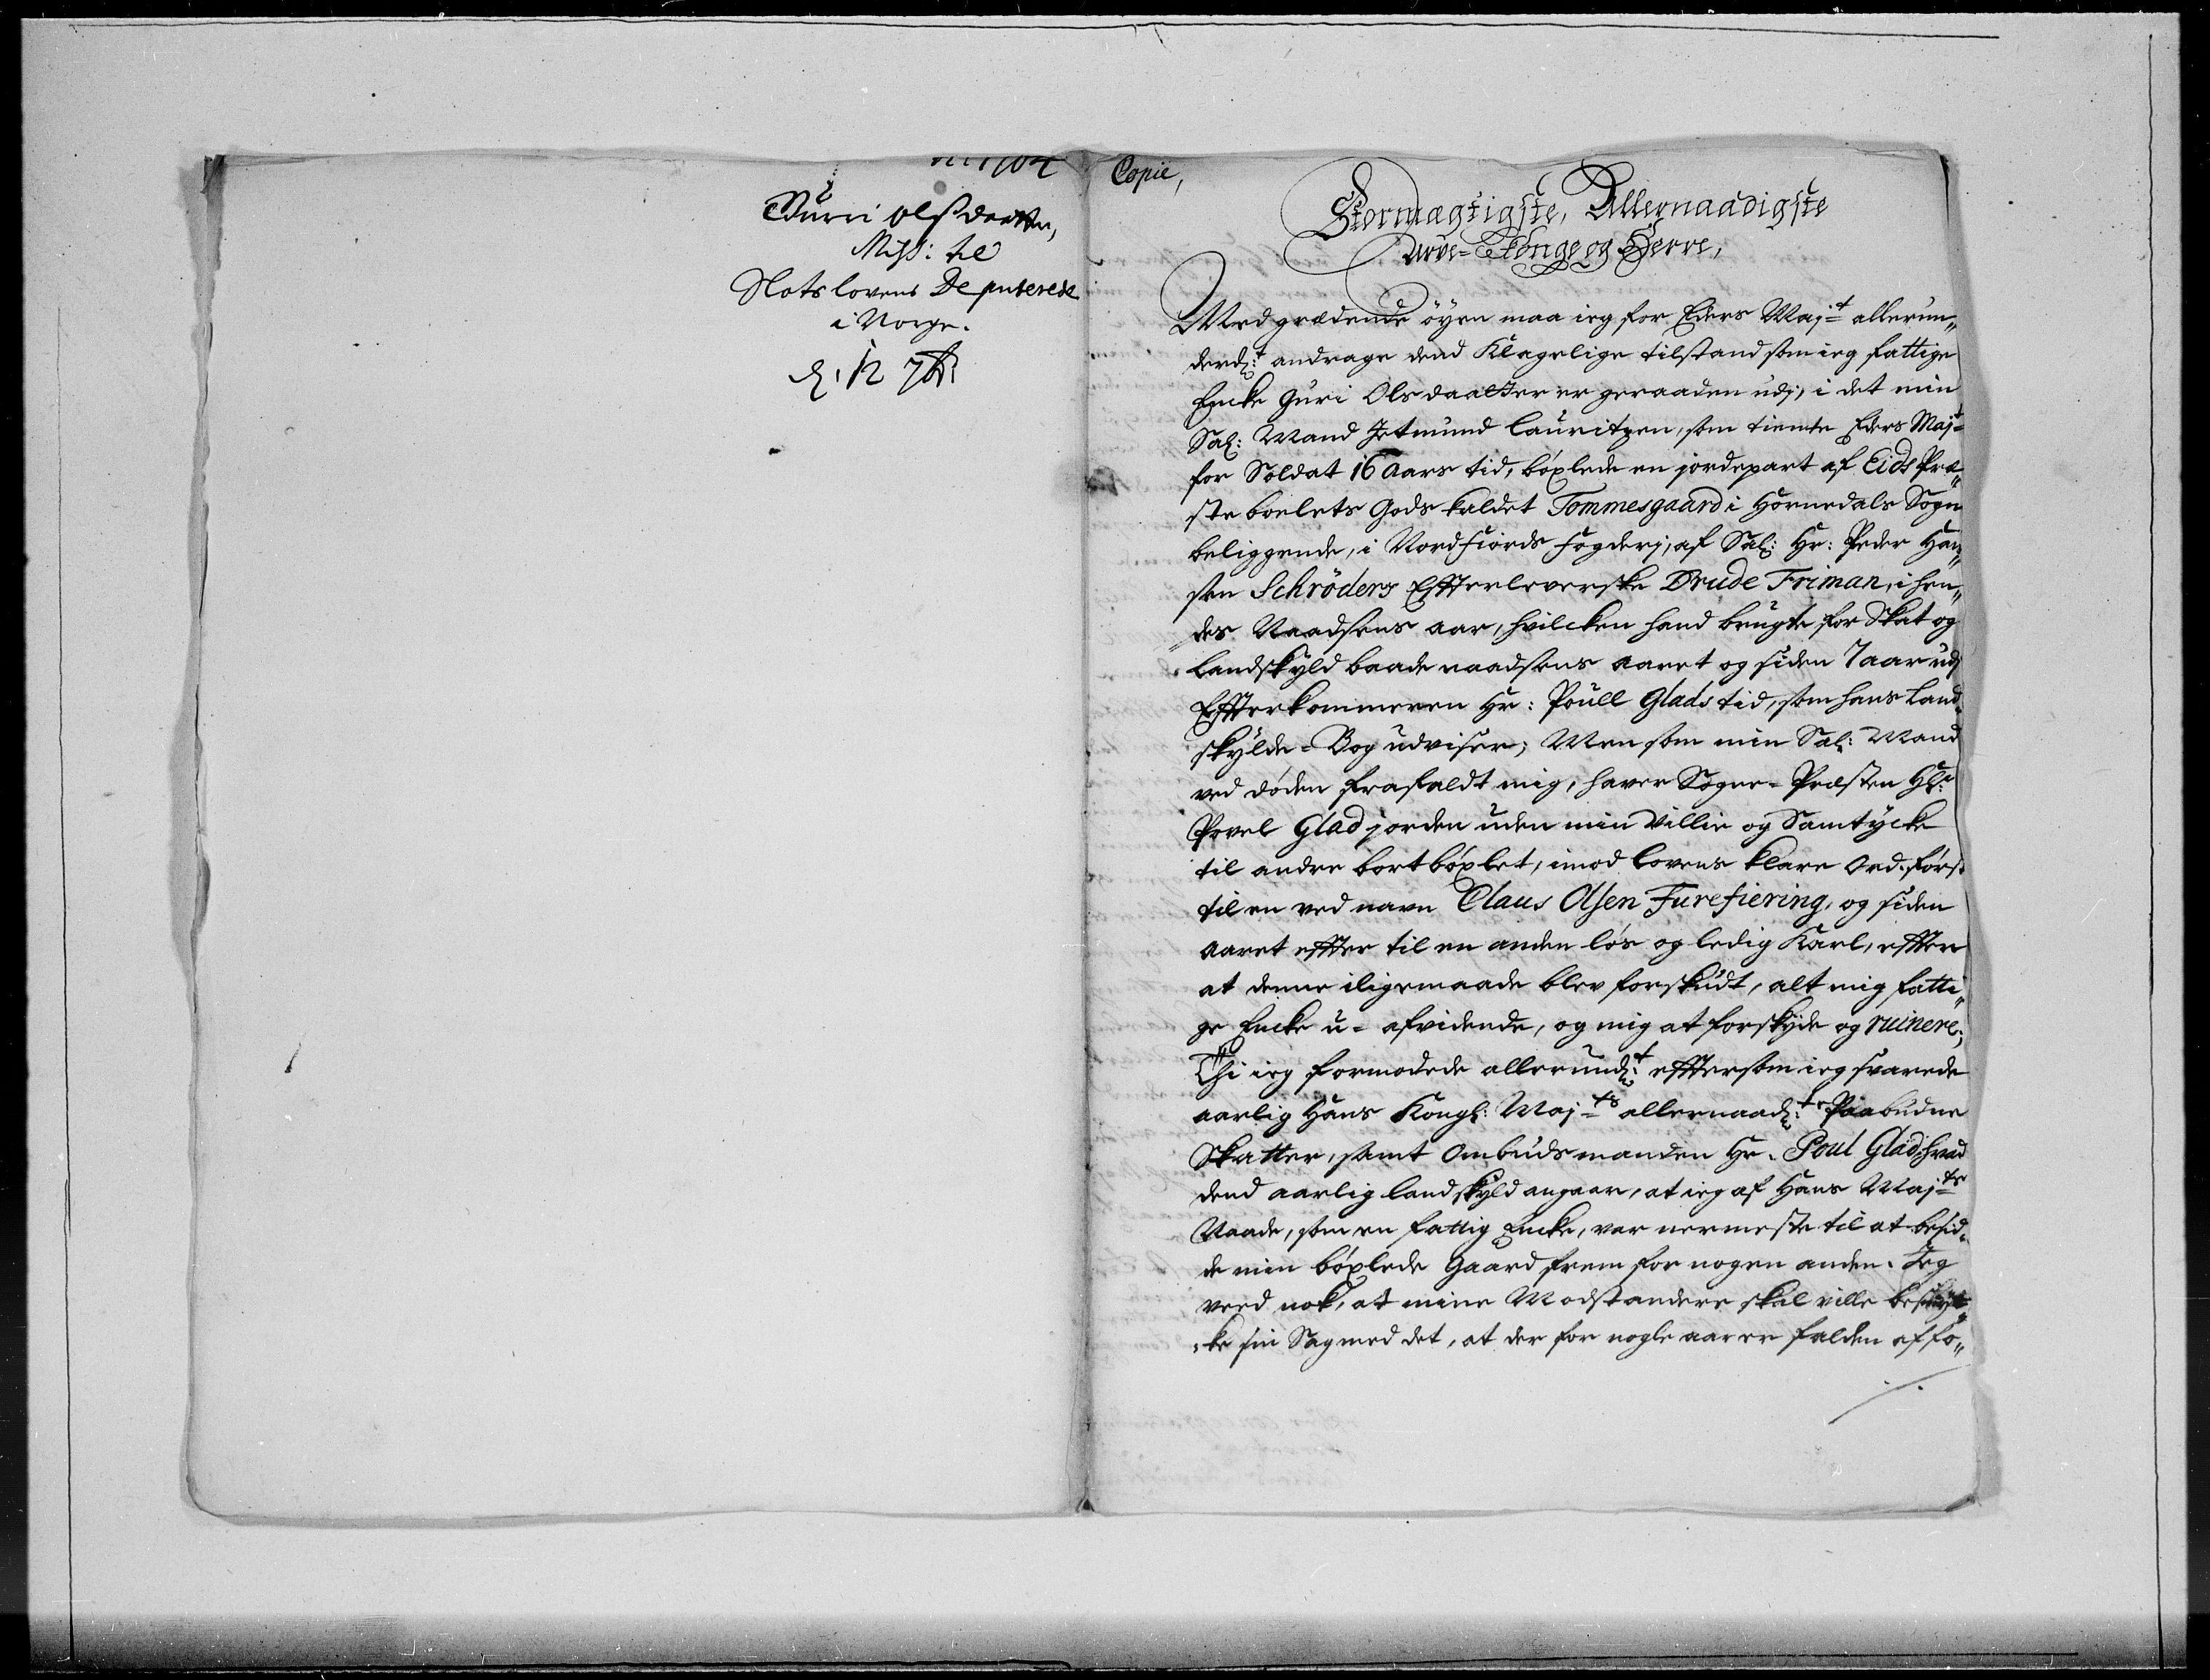 1704
Gurri Olsdaatter,
Miss: til
Slotslovens Deputerede
i Norge.
d: 12 7br:
Copie,
Stormægtigste, Allernaadigste
Arve-Konge og Herre,
Med grædende öyen maa ieg for Eders Maj:t allerun„
derd:t andrage dend Klagelige tilstand som ieg fattige
Encke Guri Olsdaatter er geraaden udj, i det min
Sal: Mand Jetmund Lauritzen, som tiente Eders Maj:t
for Soldat 16 Aars tid, böxlede en jordepart af Eids Præ„
ste boelets Gods kaldet Tommesgaard i Hornedals Sogn
beliggende, i Nordfiords fogderj, af Sal: Hr: Peder Han„
sen Schröders Effterleverske Drude Friman, i hen„
des Naadsens aar, hvilcken hand brugte for Skat og
Landskyld baade naadsens aaret og siden 7 aar udj
Effterkommeren Hr: Poull Glads tid, som hans Land„
skylde-Bog udviser; Men som min Sal: Mand
ved döden frafaldt mig, haver Sogne-Præsten Hr:
Povel Glad jorden uden min Villie og Samtycke
til andre bortböxlet, imod Lovens klare Ord, först
til en ved navn Claus Olsen Furefiering, og siden
Aaret effter til en anden lös og ledig Karl, effter
at denne iligemaade blev forskudt, alt mig fatti„
ge Encke u-afvidende, og mig at forskyde og ruinere;
Thi ieg formodede allerund:t effttersom ieg svarede
aarlig Hans Kongl: Maj:ts allernaad:t Paabudne
Skatter, samt Ombudsmanden Hr. Poul Glad, hvad
dend aarlig landskyld angaar, at ieg af Hans Maj:ts
Naade, som en fattig Encke, var nermeste til at besid„
de min böxlede Gaard frem for nogen anden. Jeg
veed nok, at mine Modstandere skal ville besmyk„
„ke sin Sag med det, at der for nogle aar er falden af fo„